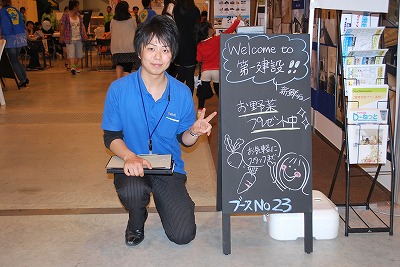 Welcome to
第一建設!!
お野菜
プレゼント中
お気軽に
スタッフまで
ブースNo 23
D-ねっと